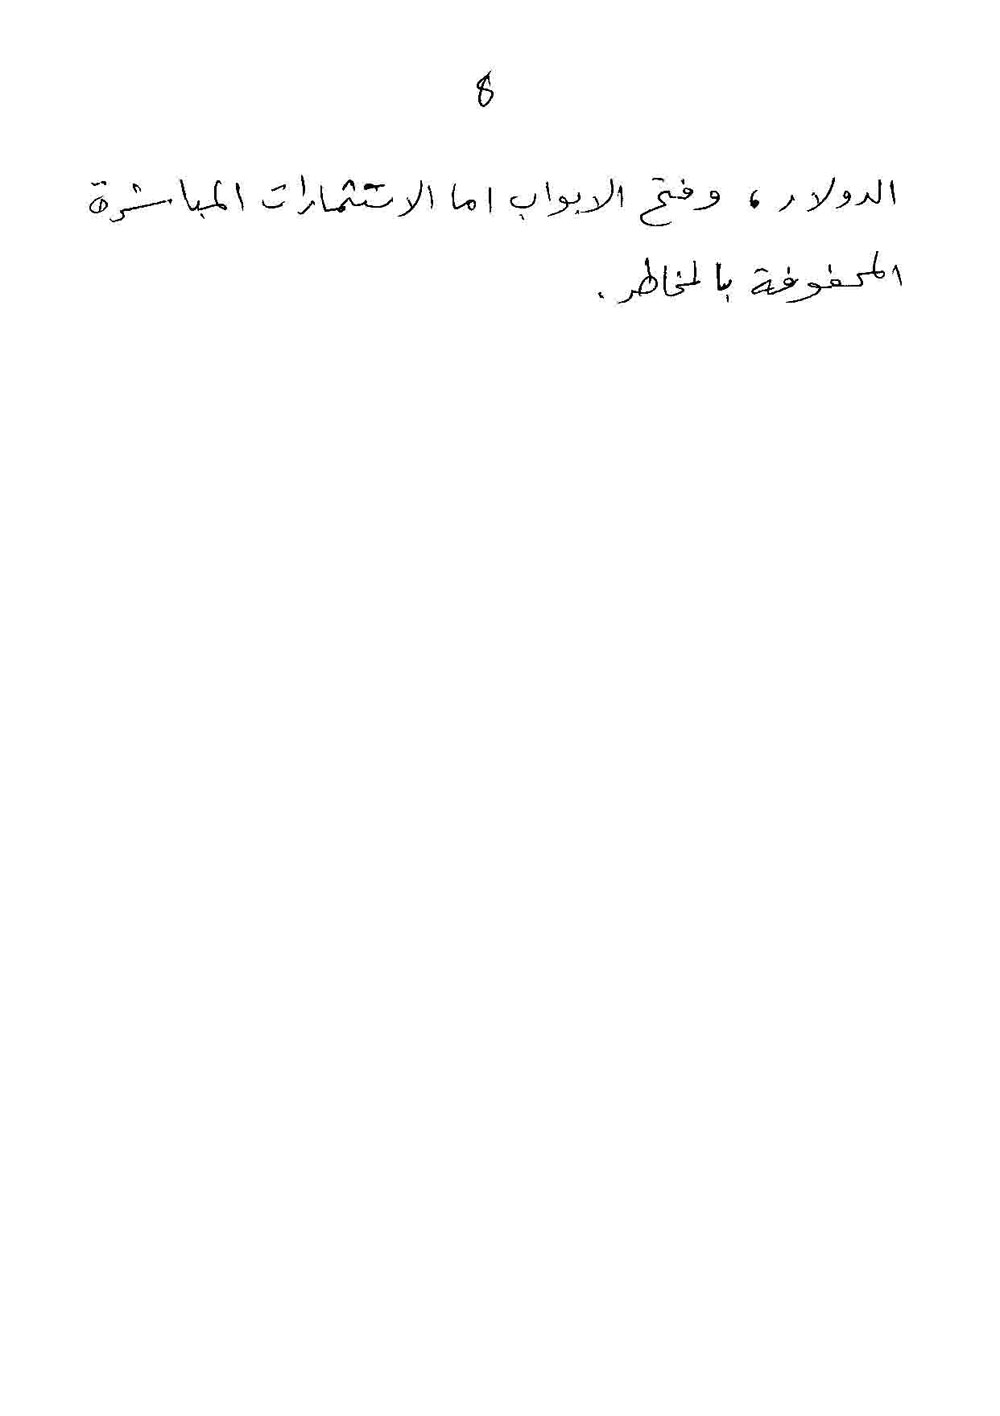 8
الدولار، وفتح الابواب اما الاستثمارات المباشرة
المحفوفة بالمخاطر.